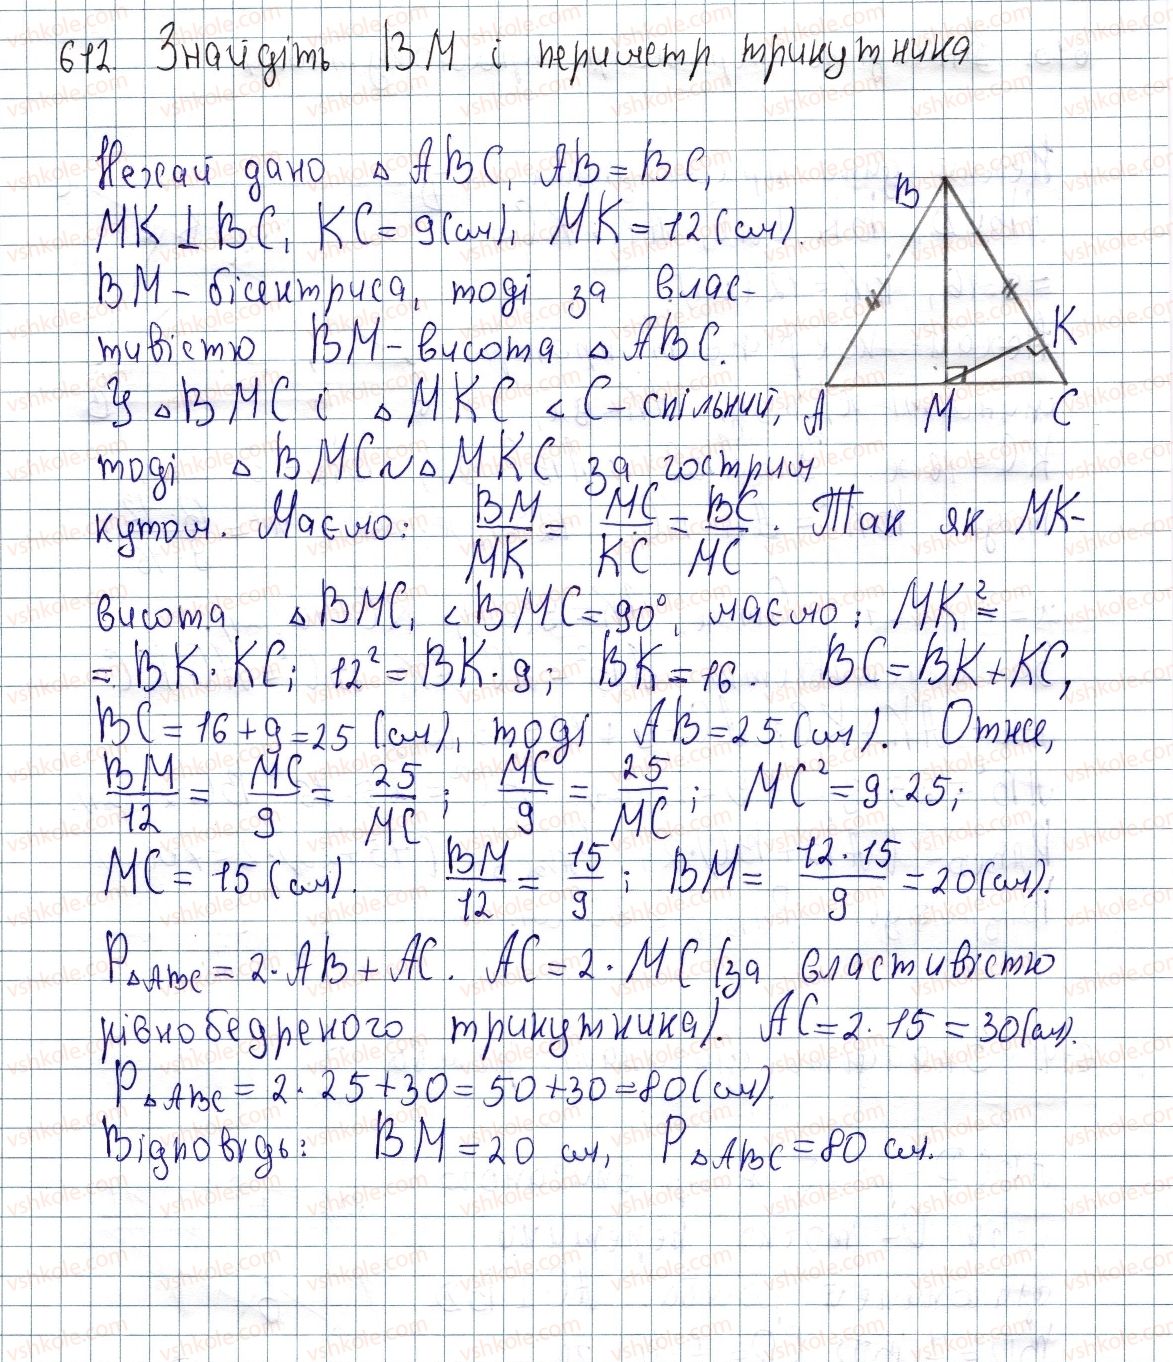 612. Знайдіть BM і периметр трикутника
Нехай дано △ ABC, AB = BC,
MK ⊥ BC, KC = 9(см), MK = 12 (см).
BM – бісектриса, тоді за влас-
тивістю BM – висота △ ABC.
У △ BMC і △ MKC ∠ C – спільний,
тоді △ BMC ~ △ MKC за гострим
кутом. Маємо: BM/MK = MC/KC = BC/MC. Так як MK-
висота △ BMC, ∠ BMC = 90°, маємо: MK² =
= BK · KC; 12² = BK · 9; BK = 16. BC = BK + KC,
BC = 16 + 9 = 25 (см), тоді AB = 25 (см). Отже,
BM/12 = MC/9 = 25/MC; MC/9 = 25/MC; MC² = 9 · 25;
MC = 15 (см). BM/12 = 15/9; BM = 12 · 15/9 = 20(см).
P△ABC = 2 · AB + AC. AC = 2 · MC (за властивістю
рівнобедреного трикутника). AC = 2 · 15 = 30(см).
P△ABC = 2 · 25 + 30 = 50 + 30 = 80 (см).
Відповідь: BM = 20 см, P△ABC = 80 см.
B
K
A
M
C
vshkole.com